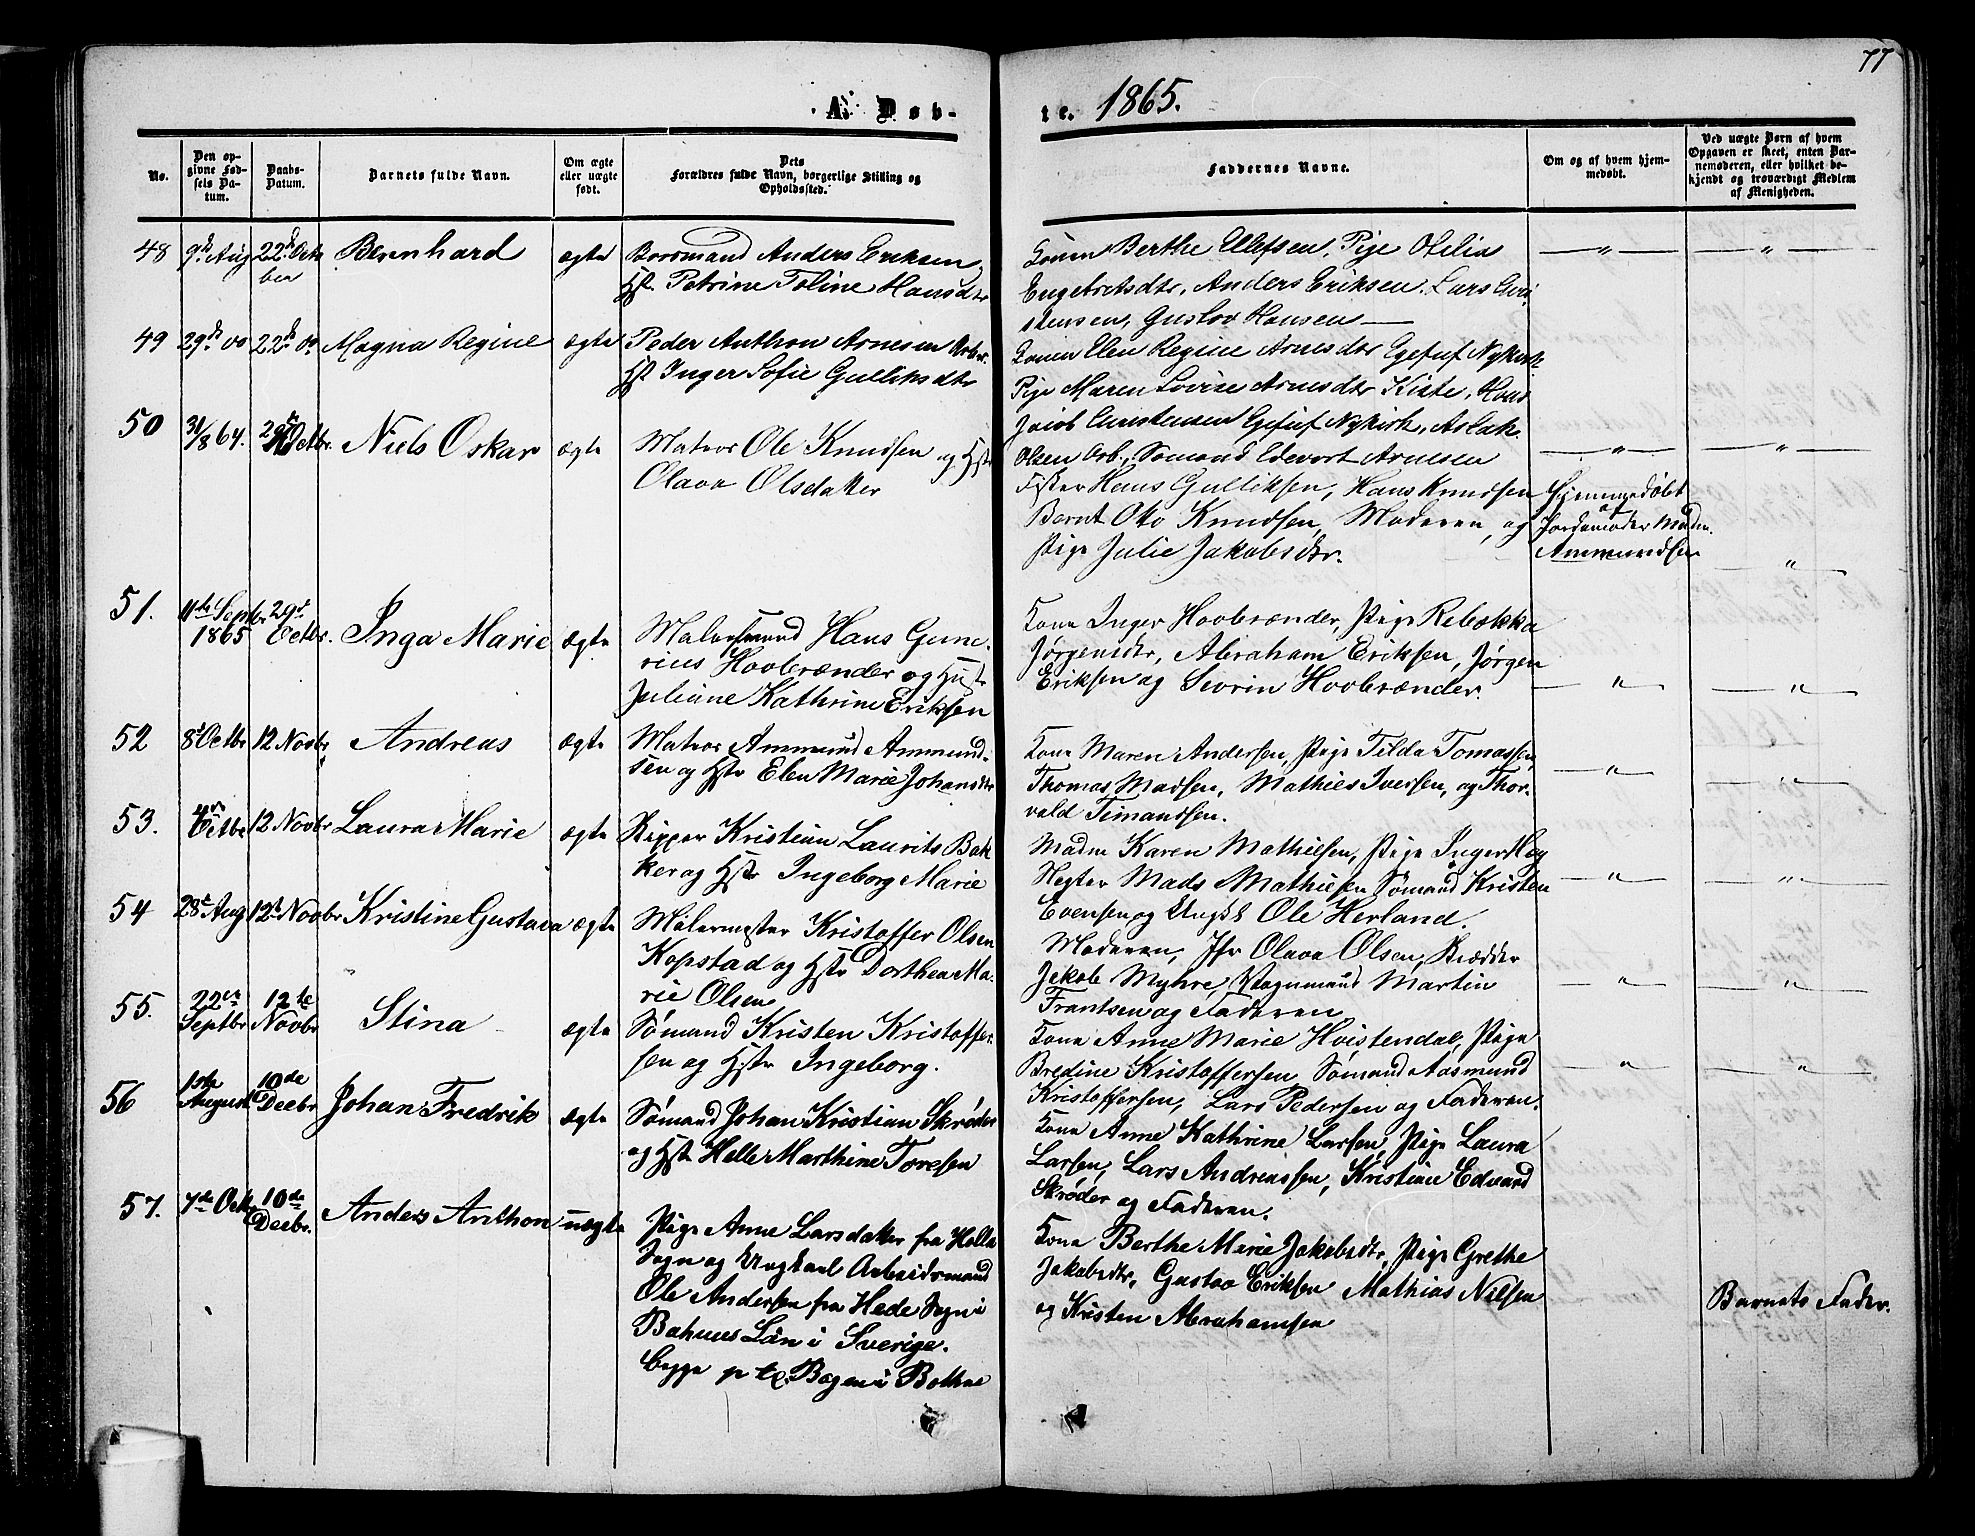 77
A. Døb-
te. 1865.
No.
Den op-
givne Fød-
sels Da-
tum.
Daabs-
Datum.
Barnets fulde Navn.
Om ægte
eller uægte
født.
Dets
Forældres fulde Navn, borgerlige Stilling og
Opholdssted.
Faddernes Navne.
Om og af hvem hjem-
medøbt.
Ved uægte Børn af hvem
Opgaven er skeet, enten Bar-
nemoderen, eller hvilket be-
kjendt og troværdigt Medlem
af Menigheden.
48 9de Aug 22de Octo
ber
Bernhard ægte
Boresmand Anders Eriksen
Hst. Petrine Toline Hansdtr
Konen Berthe Ellefsen, Pige Otilia
Engebretsdtr, Anders Eriksen, Lars Chri
stensen, Gustav Hansen
49 29de do 22de do Magna Regine ægte
Peder Anthon Arnesen Arb.
Hst Inger Sofie Gulliksdtr
Konen Elen Regine Arnesdtr Nykirk
Pige Maren Lovise Arnesdtr Kiste, Hans
Jacob Christensen Nykirk, Aslak
Olsen Arb., Sømand Edevert Arnesen
50 31/8 64. 29de Octbr. Niels Oskar ægte
Matros Ole Knudsen og Hstr
Olava Olsdatter
Fisker Hans Gulliksen, Hans Knudsen
Bernt Otto Knudsen, Moderen, og
Pige Julie Jakobsdtr.
Hjemmedøbt
af
Jordemoder Madm.
Ammundsen
51. 11te Septbr 29de
1865 Octbr. Inga Marie ægte
Malersvend Hans Gune-
rius Hovbrænder og Hustr
Juliane Kathrine Eriksen
Kone Inger Hovbrænder, Pige Rebekka
Jørgensdtr, Abraham Eriksen, Jørgen
Eriksen og Severin Hovbrænder.
52 8de Octbr 12 Novbr Andreas ægte
Matros Ammund Ammund-
sen og Hstr Elen Marie Johansdtr
Kone Maren Andersen, Pige Tilda Tomassen,
Thomas Madsen, Mathies Iversen, og Thor-
vald Timandsen.
53. Octbr 12 Novbr Laura Marie ægte
Skipper Kristian Laurits Bak
ker og Hstr Ingeborg Marie
Madm Karen Mathiesen, Pige Inger Høy
Mads Mathiesen Sømand Kristen
Evensen og Ungk Ole Herland.
54 28de Aug 12te Novbr Kristine Gustava ægte
Malermester Kristoffer Olsen
Kopstad og Hstr Dorthea Ma-
rie Olsen
Moderen, Jfr Olava Olsen, Skrædder
Jakob Myhre, Vognmand Martin
Frantsen og Faderen
55. 22de 12te
Septbr Novbr Stina ægte
Sømand Kristen Kristoffer-
sen og Hstr Ingeborg.
Kone Anne Marie Hvistendal, Pige
Bredine Kristoffersen Sømand Aasmund
Kristoffersen, Lars Pedersen og Faderen.
56 1ste 10de
August Decbr Johan Fredrik ægte
Sømand Johan Kristian Skrøder
og Hstr Helle Marthine Toresen
Kone Anne Kathrine Larsen, Pige Laura
Larsen, Lars Andreassen, Kristian Edvard
Skrøder og Faderen.
57. 7de Octbr 10de
Decbr. Anders Anthon uægte
Pige Anne Larsdatter fra Holla
Sogn og Ungkarl Arbeidsmand
Ole Andersen fra Hede Sogn i
Bahuus Län i Sverige.
begge p. t. Bogen i Bothne
Kone Berthe Marie Jakobsdtr, Pige Grethe
Jakobsdtr, Gustav Eriksen Mathias Nilsen
og Kristen Abrahamsen
Barnets Fader.